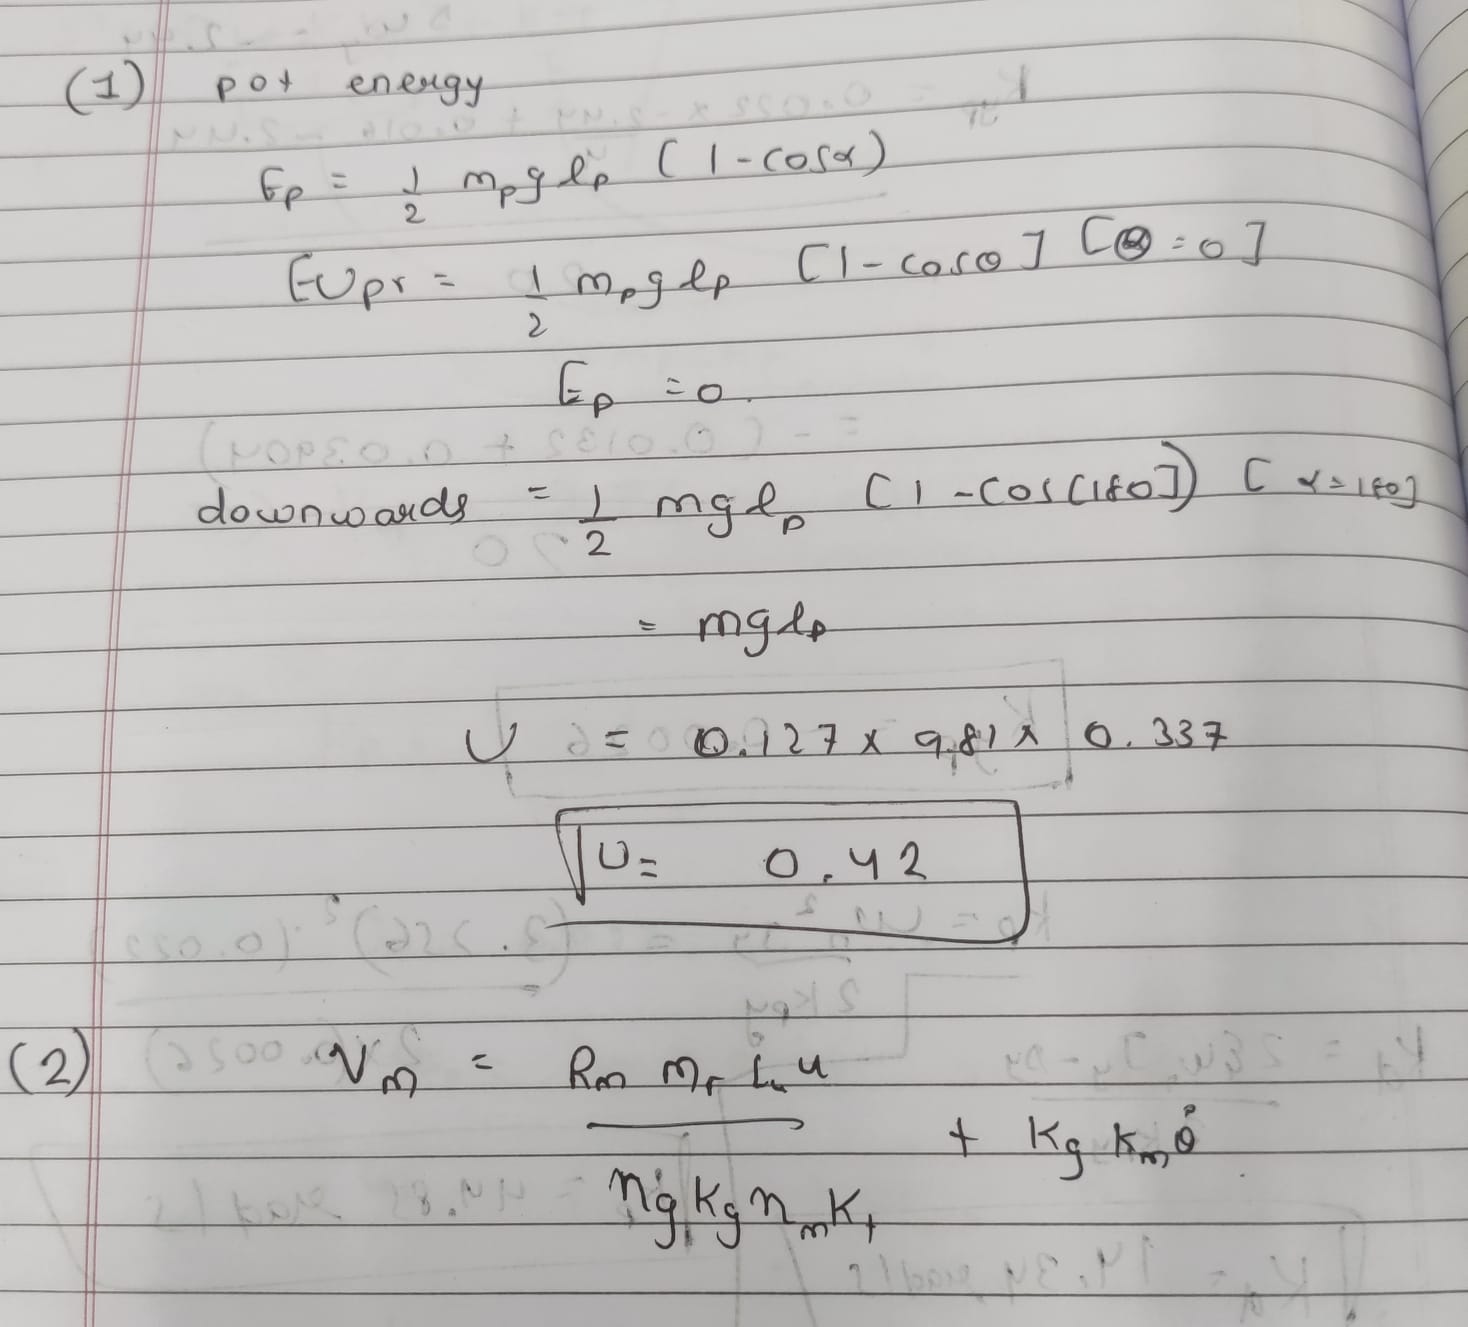 (1) pot energy
Ep = 1/2 mp g lp (1 - cosα)
EUpr = 1/2 mp g lp [1 - cos0] [θ = 0]
Ep = 0
downwards = 1/2 mg lp (1 - cos(180]) [α = 180]
= mg lp
U = 0.127 x 9.81 x 0.337
U = 0.42
(2) Vm = Rm mr Lr u / ng Kg nm Kt + Kg Km θ̇